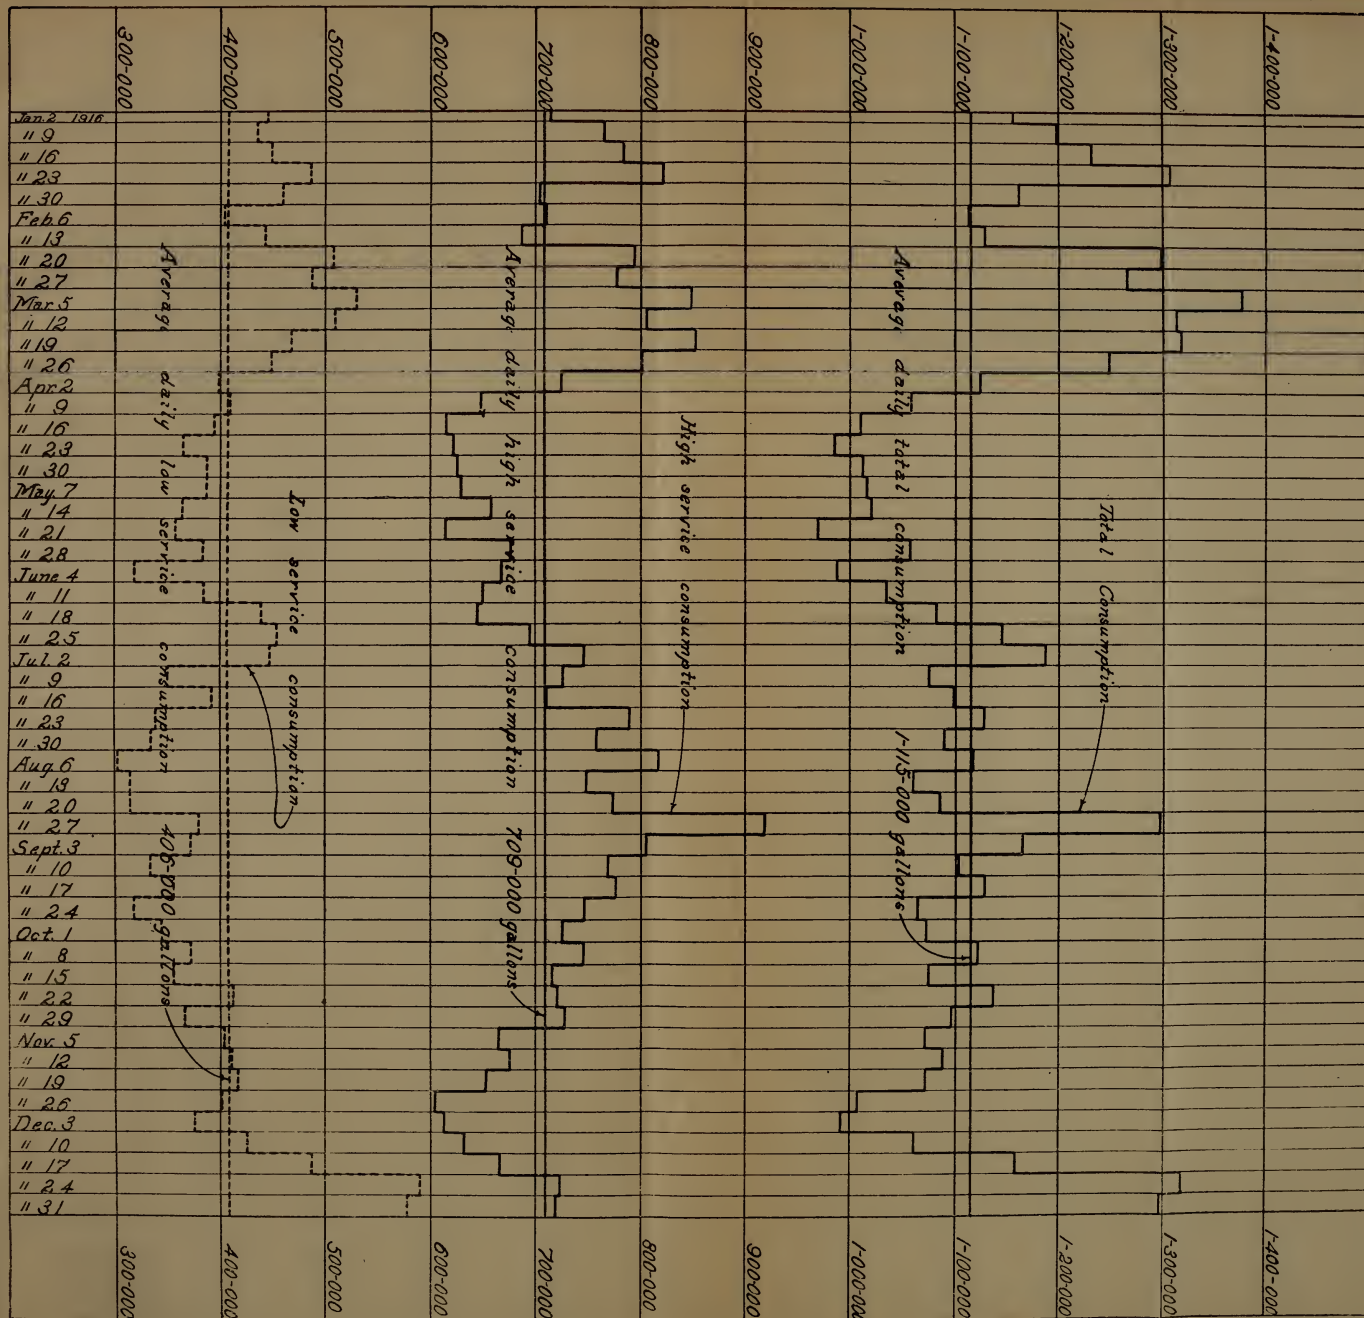 300-000
400-000
500-000
600-000
700-000
800-000
900-000
1-000-000
1-100-000
1-200-000
1-300-000
1-400-000
Jan. 2 1916
" 9
" 16
" 23
" 30
Feb. 6
" 13
" 20
" 27
Mar. 5
" 12
" 19
" 26
Apr. 2
" 9
" 16
" 23
" 30
May. 7
" 14
" 21
" 28
June 4
" 11
" 18
" 25
Jul. 2
" 9
" 16
" 23
" 30
Aug. 6
" 13
" 20
" 27
Sept. 3
" 10
" 17
" 24
Oct. 1
" 8
" 15
" 22
" 29
Nov. 5
" 12
" 19
" 26
Dec. 3
" 10
" 17
" 24
" 31
Total Consumption
Average daily total consumption 1-115-000 gallons
High service consumption
Average daily high service consumption 709-000 gallons
Low service consumption
Average daily low service consumption 406-000 gallons
300-000
400-000
500-000
600-000
700-000
800-000
900-000
1-000-000
1-100-000
1-200-000
1-300-000
1-400-000